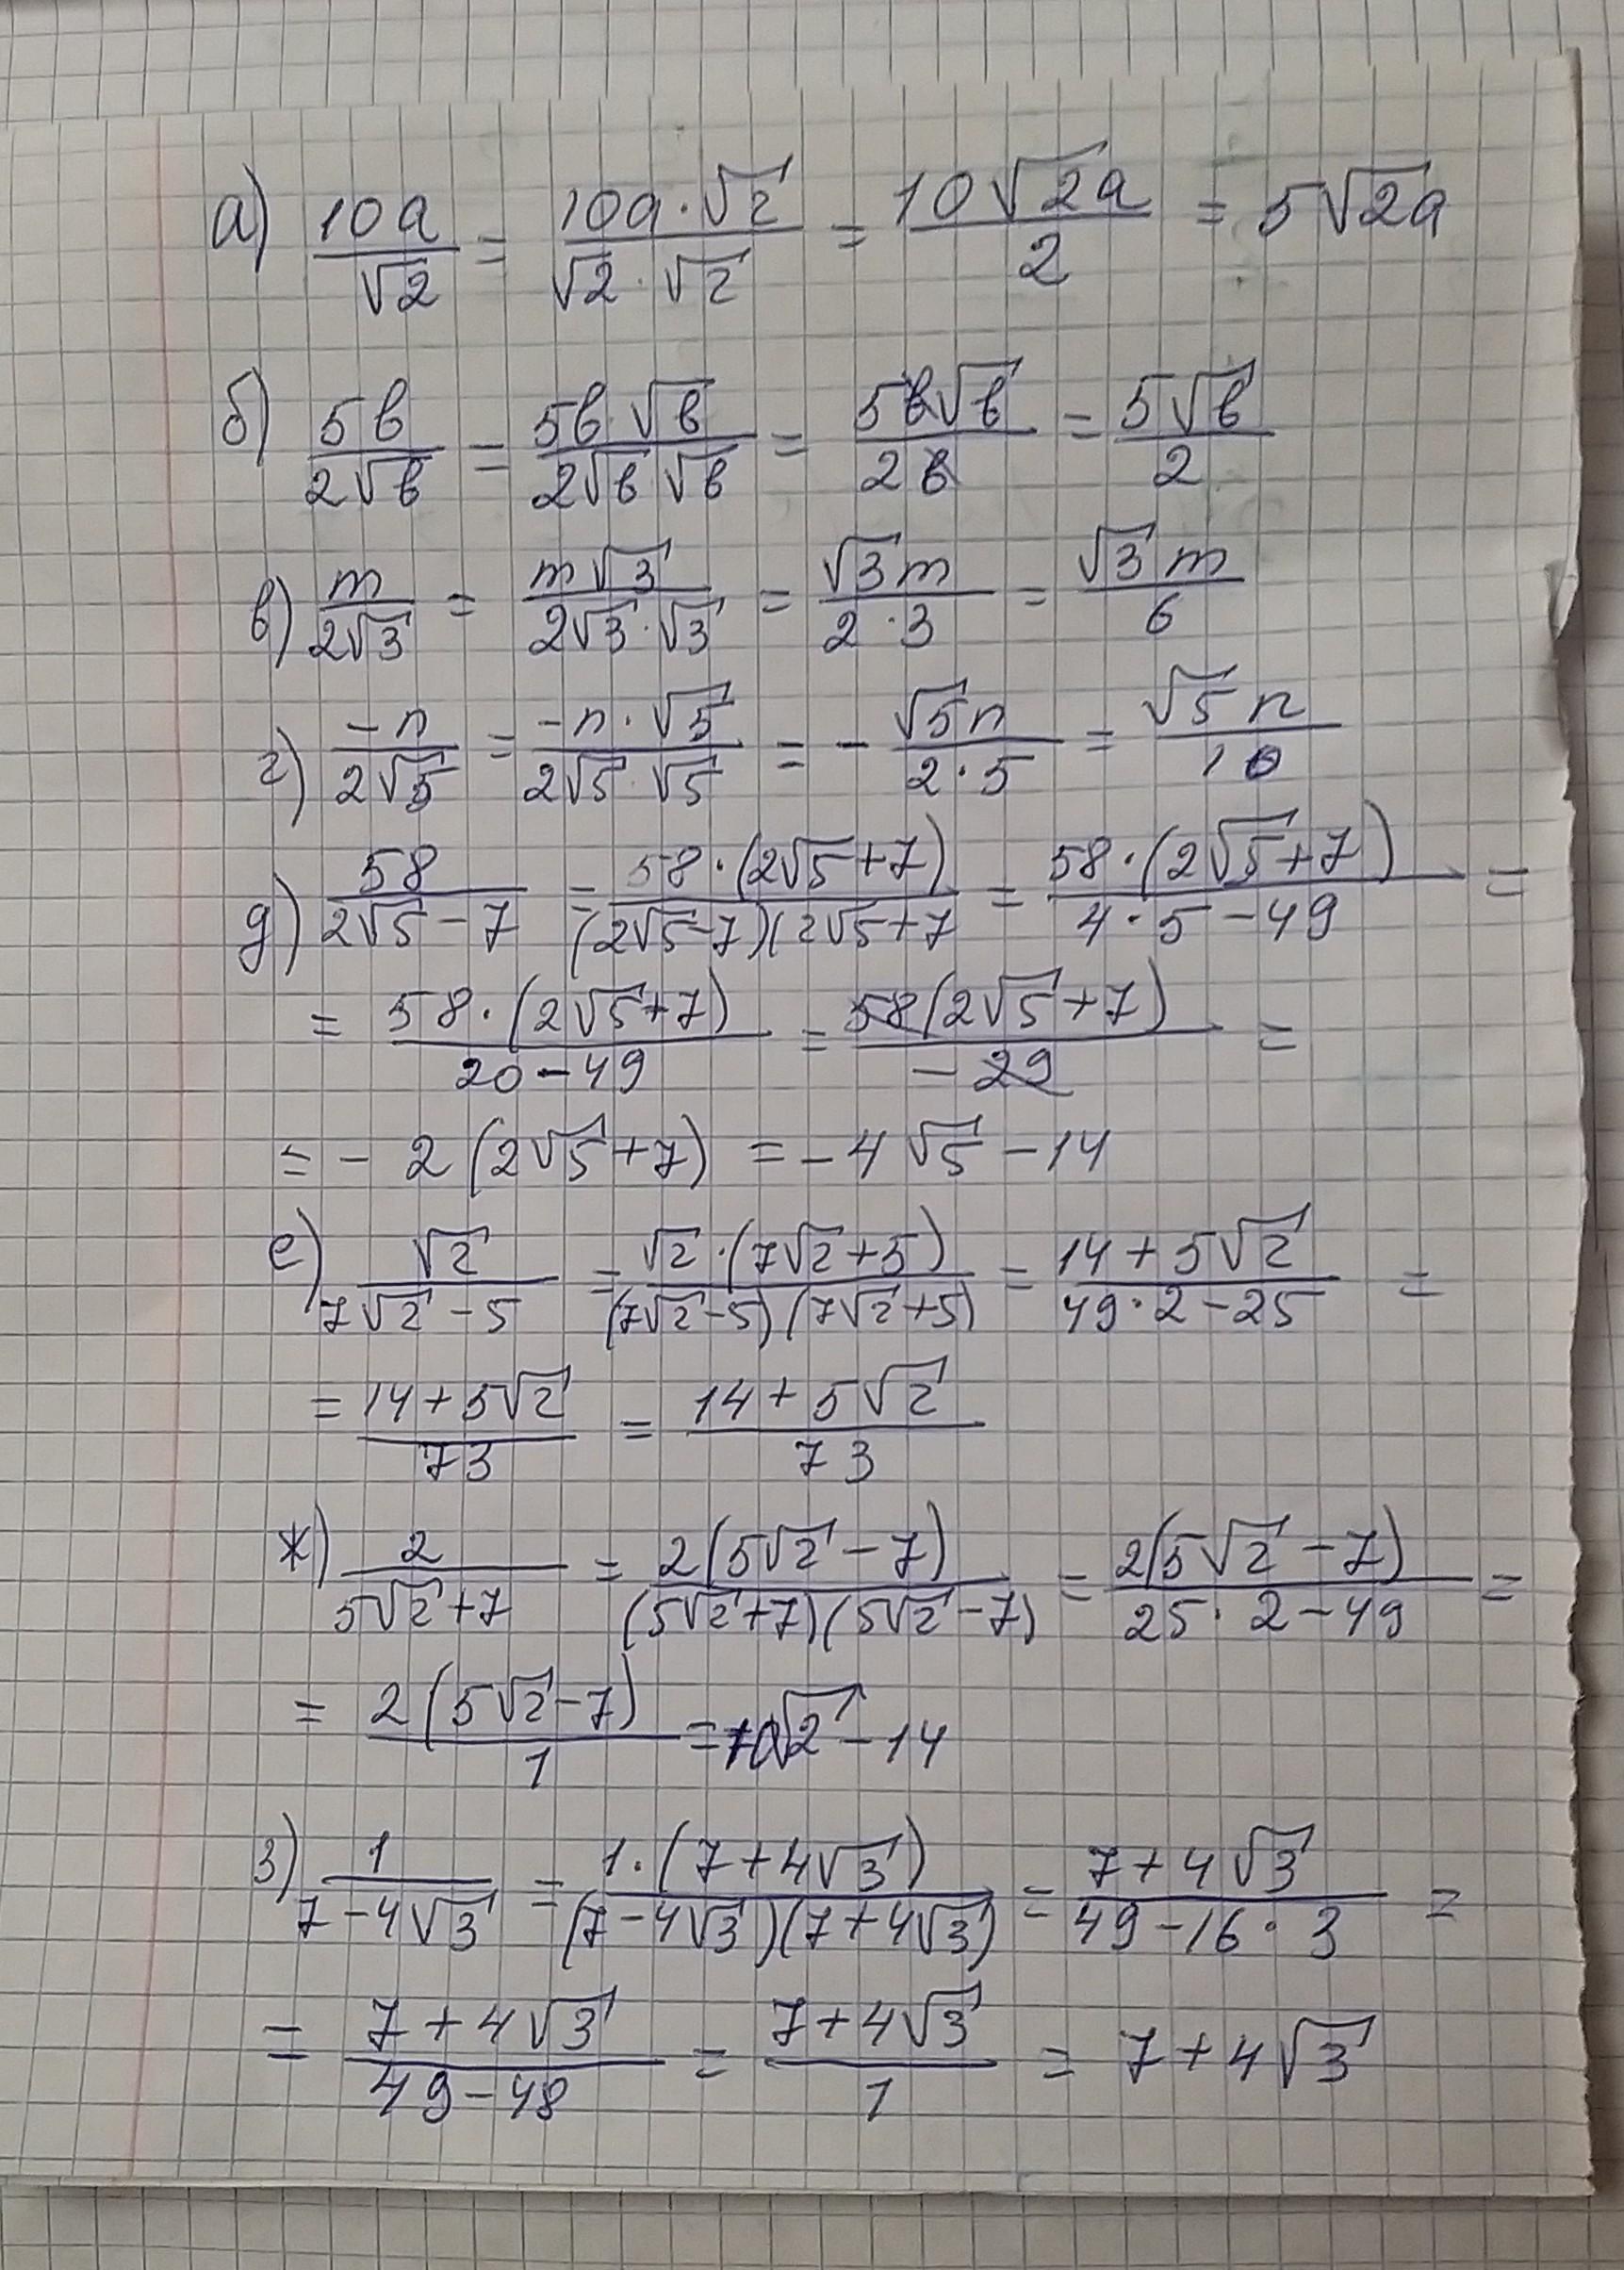 а) 10a/√2 = 10a·√2/√2·√2 = 10√2a/2 = 5√2a
б) 5b/2√b = 5b·√b/2√b √b = 5b√b/2b = 5√b/2
в) m/2√3 = m√3/2√3·√3 = √3m/2·3 = √3m/6
г) -n/2√5 = -n·√5/2√5·√5 = - √5n/2·5 = √5n/10
д) 58/2√5-7 = 58·(2√5+7)/(2√5-7)(2√5+7 = 58·(2√5+7)/4·5-49 =
= 58·(2√5+7)/20-49 = 58(2√5+7)/-29 =
= - 2(2√5+7) = -4√5-14
е) √2/7√2-5 = √2·(7√2+5)/(7√2-5)(7√2+5) = 14+5√2/49·2-25 =
= 14+5√2/73 = 14+5√2/73
ж) 2/5√2+7 = 2(5√2-7)/(5√2+7)(5√2-7) = 2(5√2-7)/25·2-49 =
= 2(5√2-7)/1 = 10√2-14
з) 1/7-4√3 = 1·(7+4√3)/(7-4√3)(7+4√3) = 7+4√3/49-16·3 =
= 7+4√3/49-48 = 7+4√3/1 = 7+4√3